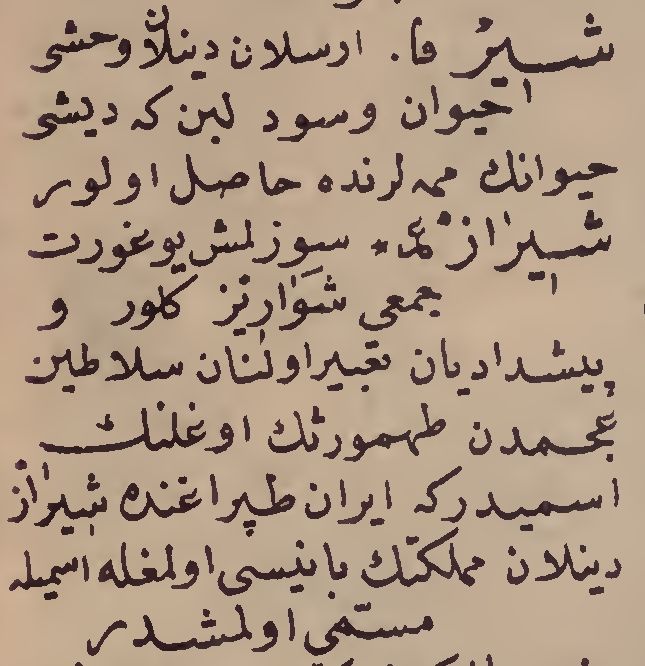 شيرْ فا. ارسلان دينلان وحشى
حيوان وسود لبن كه ديشى
حيوانك ممه لرنده حاصل اولور
شيرازْ عمـ* سوزلمش يوغورت
جمعى شواريز كلور و
پيشداديان تعبير اولنان سلاطين
عجمدن طهمورثك اوغلنك
اسميدركه ايران طپراغنده شيراز
دينلان مملكتك بانيسى اولمغله اسميله
مسمّى اولمشدر